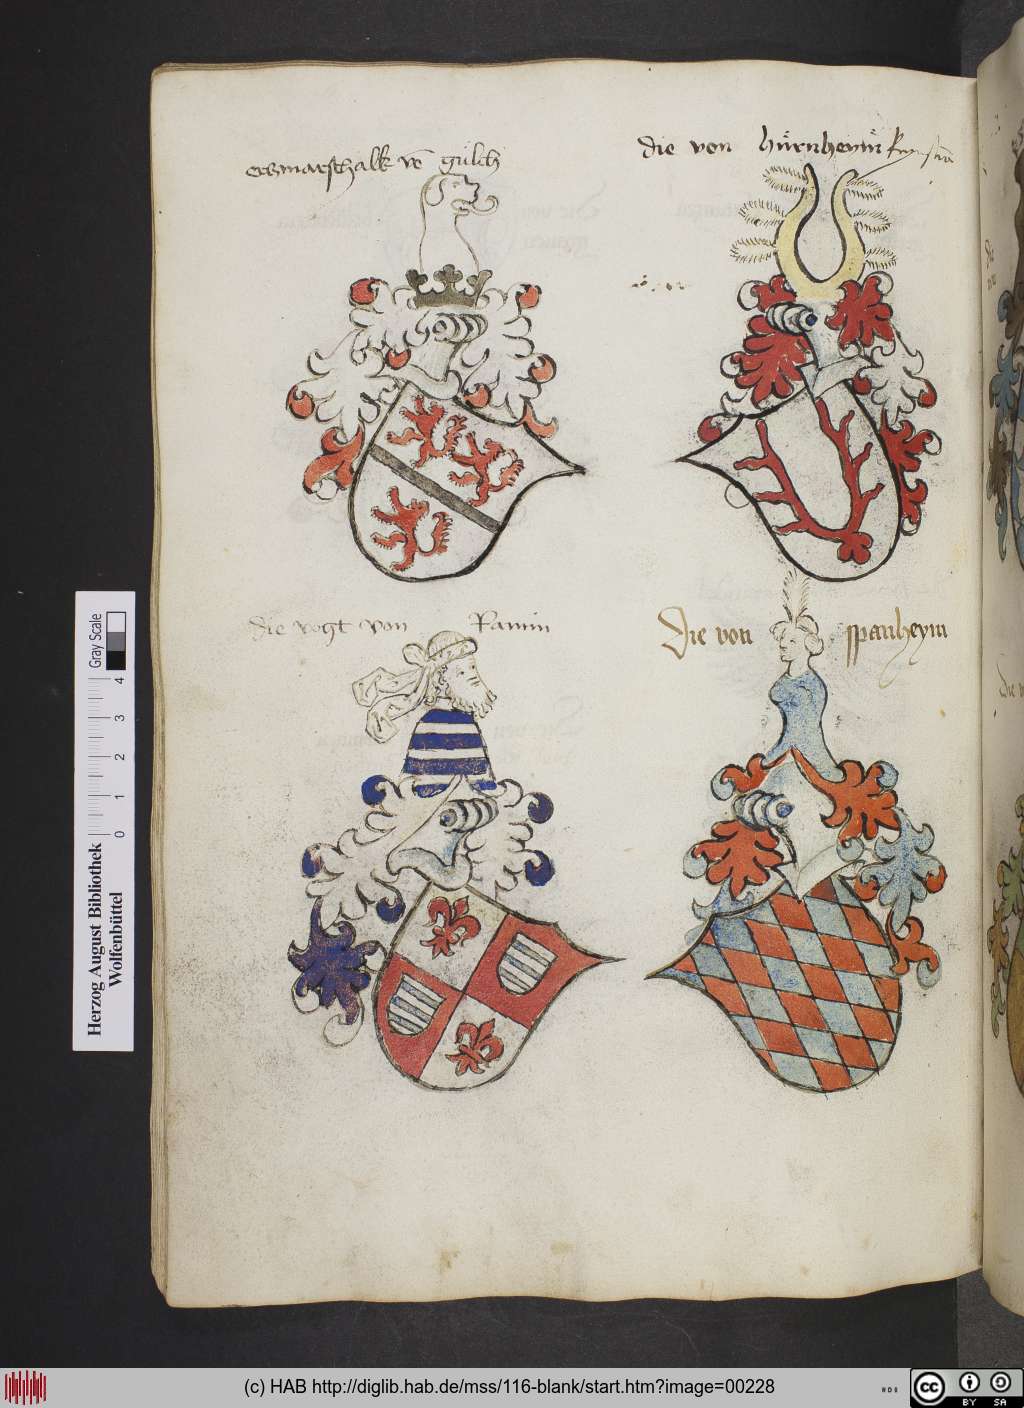 erbmarschalk vō gülch
die von hürnheym
die vogt von Ramin
Die von spanheym
Gray Scale
4
3
2
1
0
Herzog August Bibliothek
Wolfenbüttel
(c) HAB http://diglib.hab.de/mss/116-blank/start.htm?image=00228
cc
BY SA